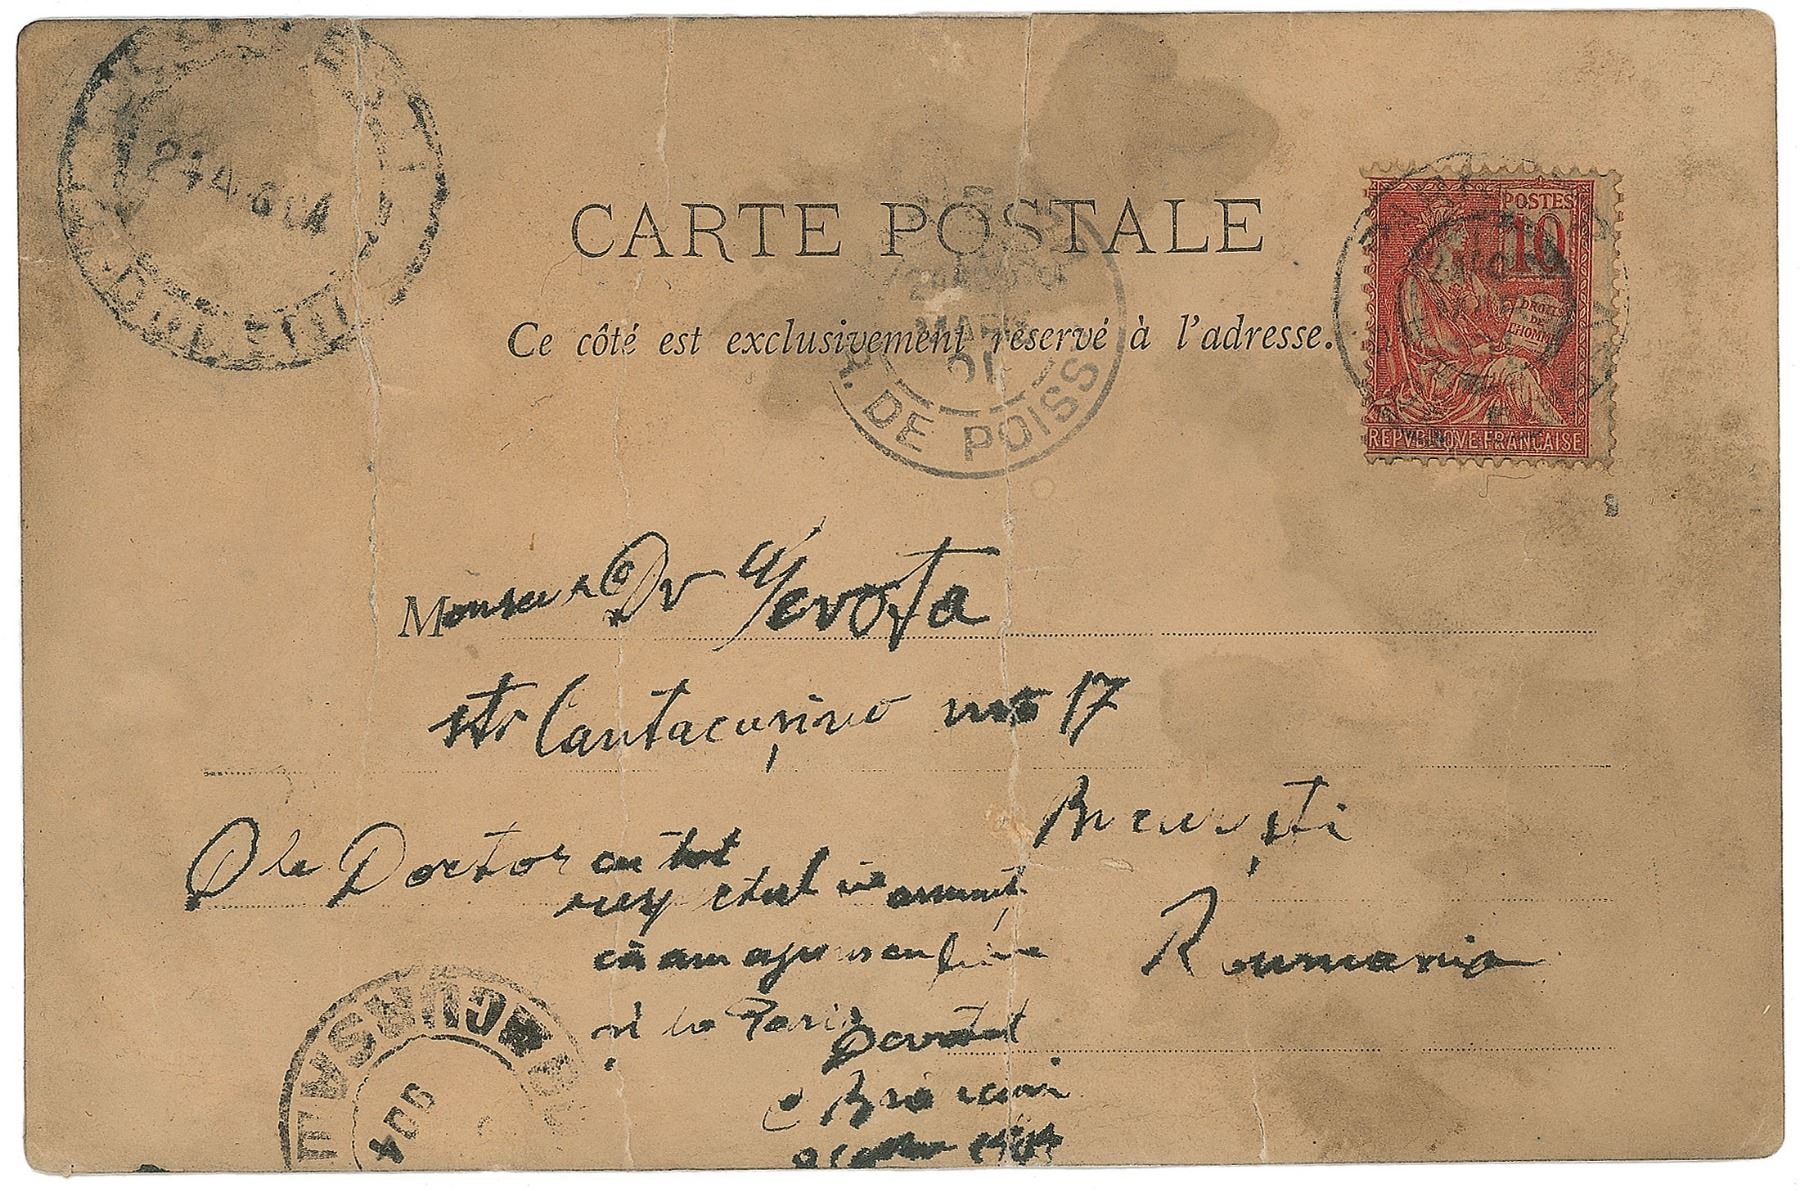 CARTE POSTALE
Ce côté est exclusivement réservé à l'adresse.
POSTES
10
DROITS DE L'HOMME
REPVBLIQVE FRANÇAISE
24 AUG 04
MARS
01
DE POISS
Monsieur Dr Gerota
str Cantacuzino no 17
București
Roumania
Dle Doctor cu tot
respectul ve anunț
că am ajuns cu bine
și la Paris
Devotat
C Brâncuși
904